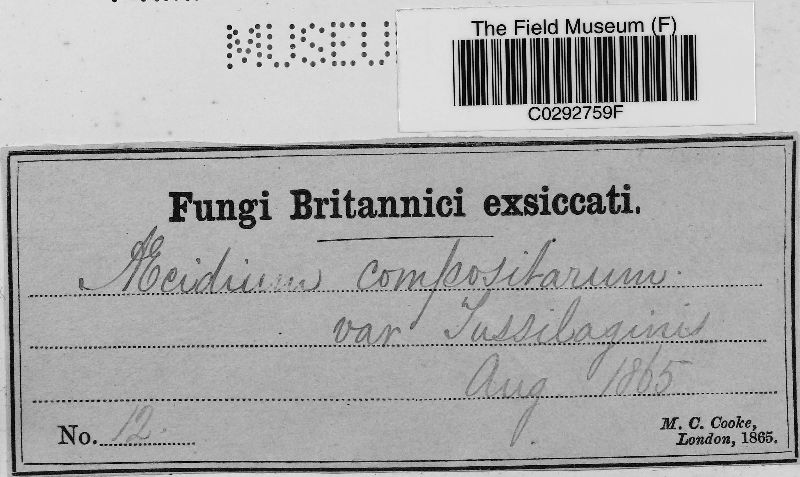 MUSEU
The Field Museum (F)
C0292759F
Fungi Britannici exsiccati.
Æcidium compositarum.
var Tussilaginis
Aug 1865
No. 12.
M. C. Cooke,
London, 1865.